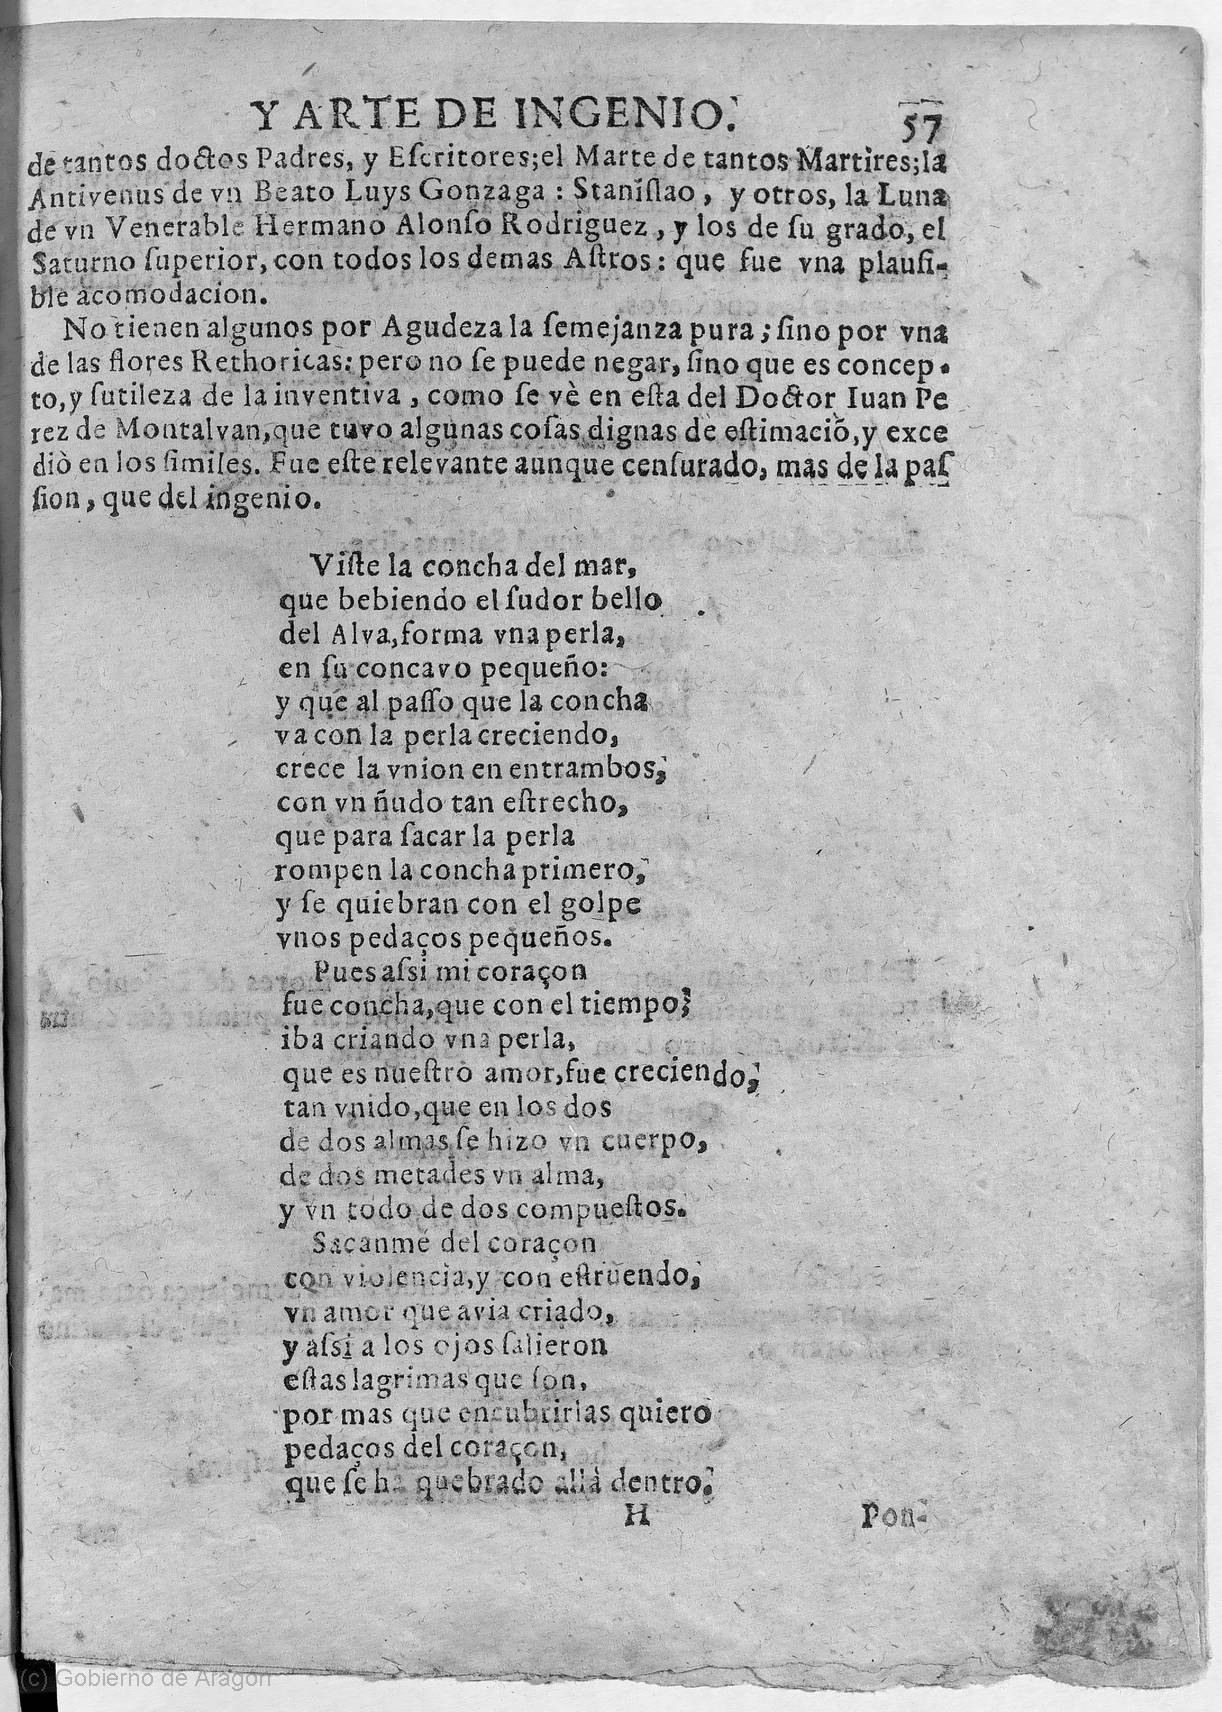 Y ARTE DE INGENIO. 57
de tantos doctos Padres, y Eſcritores; el Marte de tantos Martires; la
Antivenus de vn Beato Luys Gonzaga : Staniſlao, y otros, la Luna
de vn Venerable Hermano Alonſo Rodriguez, y los de ſu grado, el
Saturno ſuperior, con todos los demas Aſtros: que fue vna plauſi-
ble acomodacion.
No tienen algunos por Agudeza la ſemejanza pura; ſino por vna
de las flores Rethoricas: pero no ſe puede negar, ſino que es concep-
to, y ſutileza de la inventiva, como ſe vè en eſta del Doctor Iuan Pe
rez de Montalvan, que tuvo algunas coſas dignas de eſtimaciõ, y exce
diò en los ſimiles. Fue eſte relevante aunque cenſurado, mas de la paſ
ſion, que del ingenio.
Viſte la concha del mar,
que bebiendo el ſudor bello
del Alva, forma vna perla,
en ſu concavo pequeño:
y que al paſſo que la concha
va con la perla creciendo,
crece la vnion en entrambos,
con vn ñudo tan eſtrecho,
que para ſacar la perla
rompen la concha primero,
y ſe quiebran con el golpe
vnos pedaços pequeños.
Pues aſsi mi coraçon
fue concha, que con el tiempo,
iba criando vna perla,
que es nueſtro amor, fue creciendo,
tan vnido, que en los dos
de dos almas ſe hizo vn cuerpo,
de dos metades vn alma,
y vn todo de dos compueſtos.
Sacanme del coraçon
con violencia, y con eſtruendo,
vn amor que avia criado,
y aſsi a los ojos ſalieron
eſtas lagrimas que ſon,
por mas que encubrirlas quiero
pedaços del coraçon,
que ſe ha quebrado allà dentro.
H Pon-
(c) Gobierno de Aragón